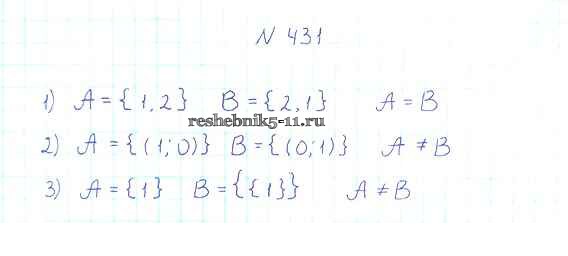 N 431
1) A = {1,2} B = {2,1} A = B
reshebnik5-11.ru
2) A = {(1;0)} B = {(0;1)} A ≠ B
3) A = {1} B = {{1}} A ≠ B